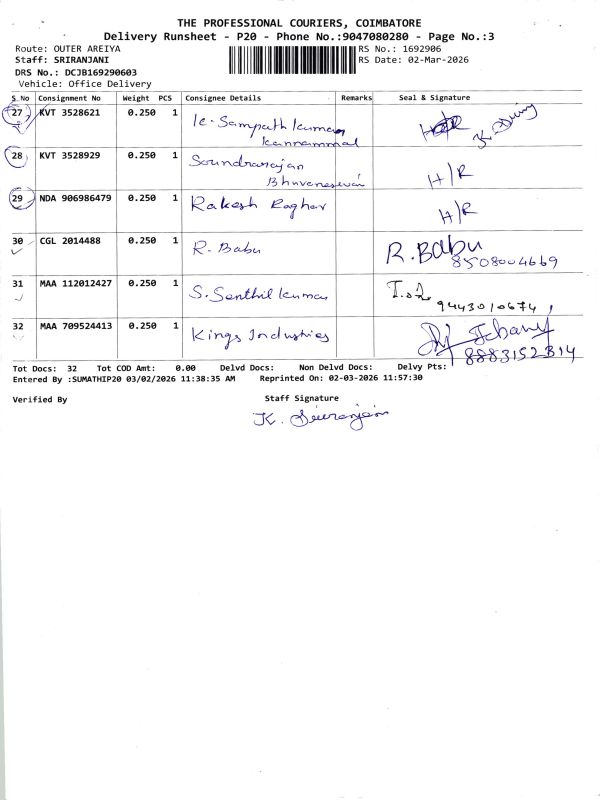 THE PROFESSIONAL COURIERS, COIMBATORE
Delivery Runsheet - P20 - Phone No.:9047080280 - Page No.:3
Route: OUTER AREIYA
RS No.: 1692906
Staff: SRIRANJANI
RS Date: 02-Mar-2026
DRS No.: DCJB169290603
Vehicle: Office Delivery
S No Consignment No Weight PCS Consignee Details Remarks Seal & Signature
27 KVT 3528621 0.250 1 K. Sampath kumar
kannammal
28 KVT 3528929 0.250 1 Soundrarajan H/R
Bhuvaneswari
29 NDA 906986479 0.250 1 Rakesh Raghav H/R
30 CGL 2014488 0.250 1 R. Babu R. Babu
8508004669
31 MAA 112012427 0.250 1 S. Senthil kumar
9443010674
32 MAA 709524413 0.250 1 Kings Industries
8883152314
Tot Docs: 32 Tot COD Amt: 0.00 Delvd Docs: Non Delvd Docs: Delvy Pts:
Entered By :SUMATHIP20 03/02/2026 11:38:35 AM Reprinted On: 02-03-2026 11:57:30
Verified By Staff Signature